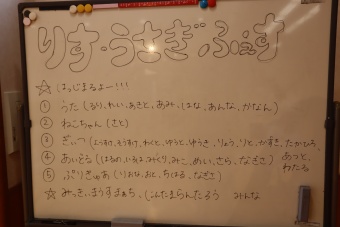 りす・うさぎ ふぇす
☆ はっじまるよー!!!
① うた (るり、れい、あきと、あみ、はな、あんな、かなん)
② ねこちゃん (さと)
③ だいて (こうすけ、そうすけ、わくと、ゆうと、ゆうき、りょう、りと、かずき、たかひろ、
あつと、わたる
④ あいどる (はるめ、いろは、みくり、みこ、めい、さら、なぎさ)
⑤ ぷりきゅあ (りおな、おと、ちはる、なぎさ)
☆ みっきぃまうすまぁち (こんたまらんたろう みんな